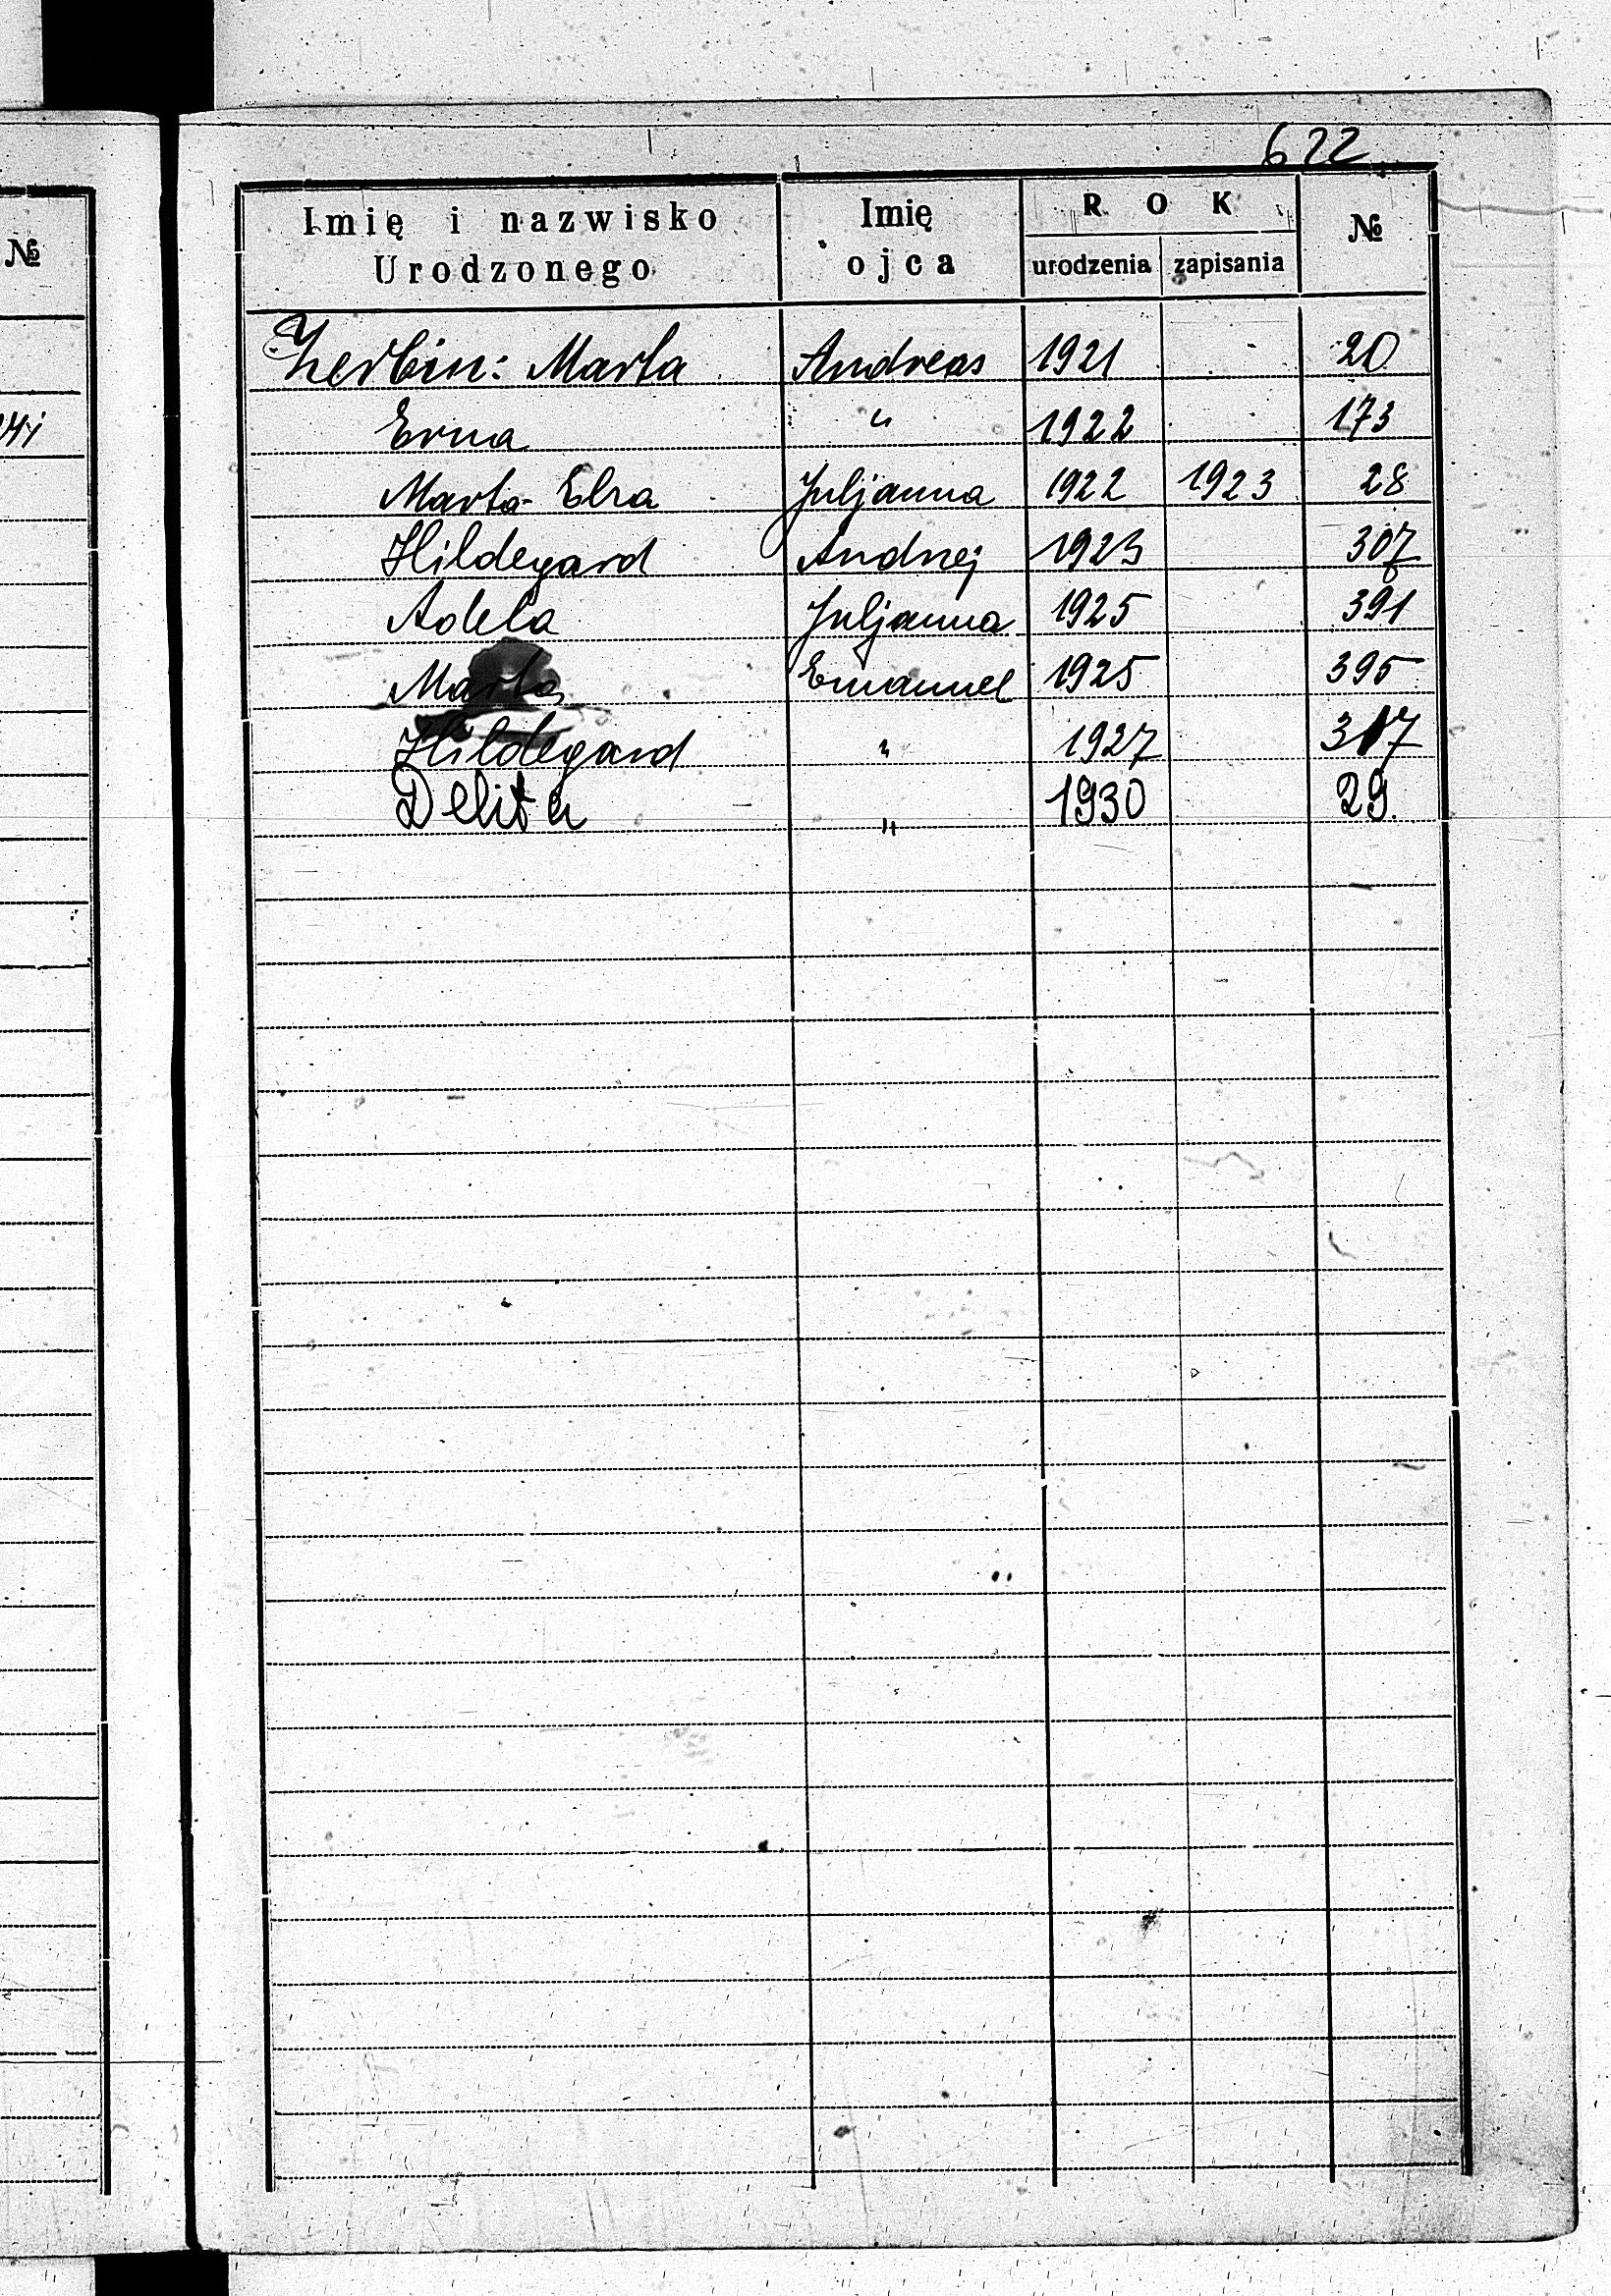 622
№
Imię i nazwisko Urodzonego
Imię ojca
ROK
urodzenia
zapisania
№
Zerbin: Marta Andreas 1921 20
Erna " 1922 173
Marta Elza Juljanna 1922 1923 28
Hildegard Andrzej 1923 307
Adela Juljanna 1925 391
Marta Emanuel 1925 395
Hildegard " 1927 317
" 1930 29.